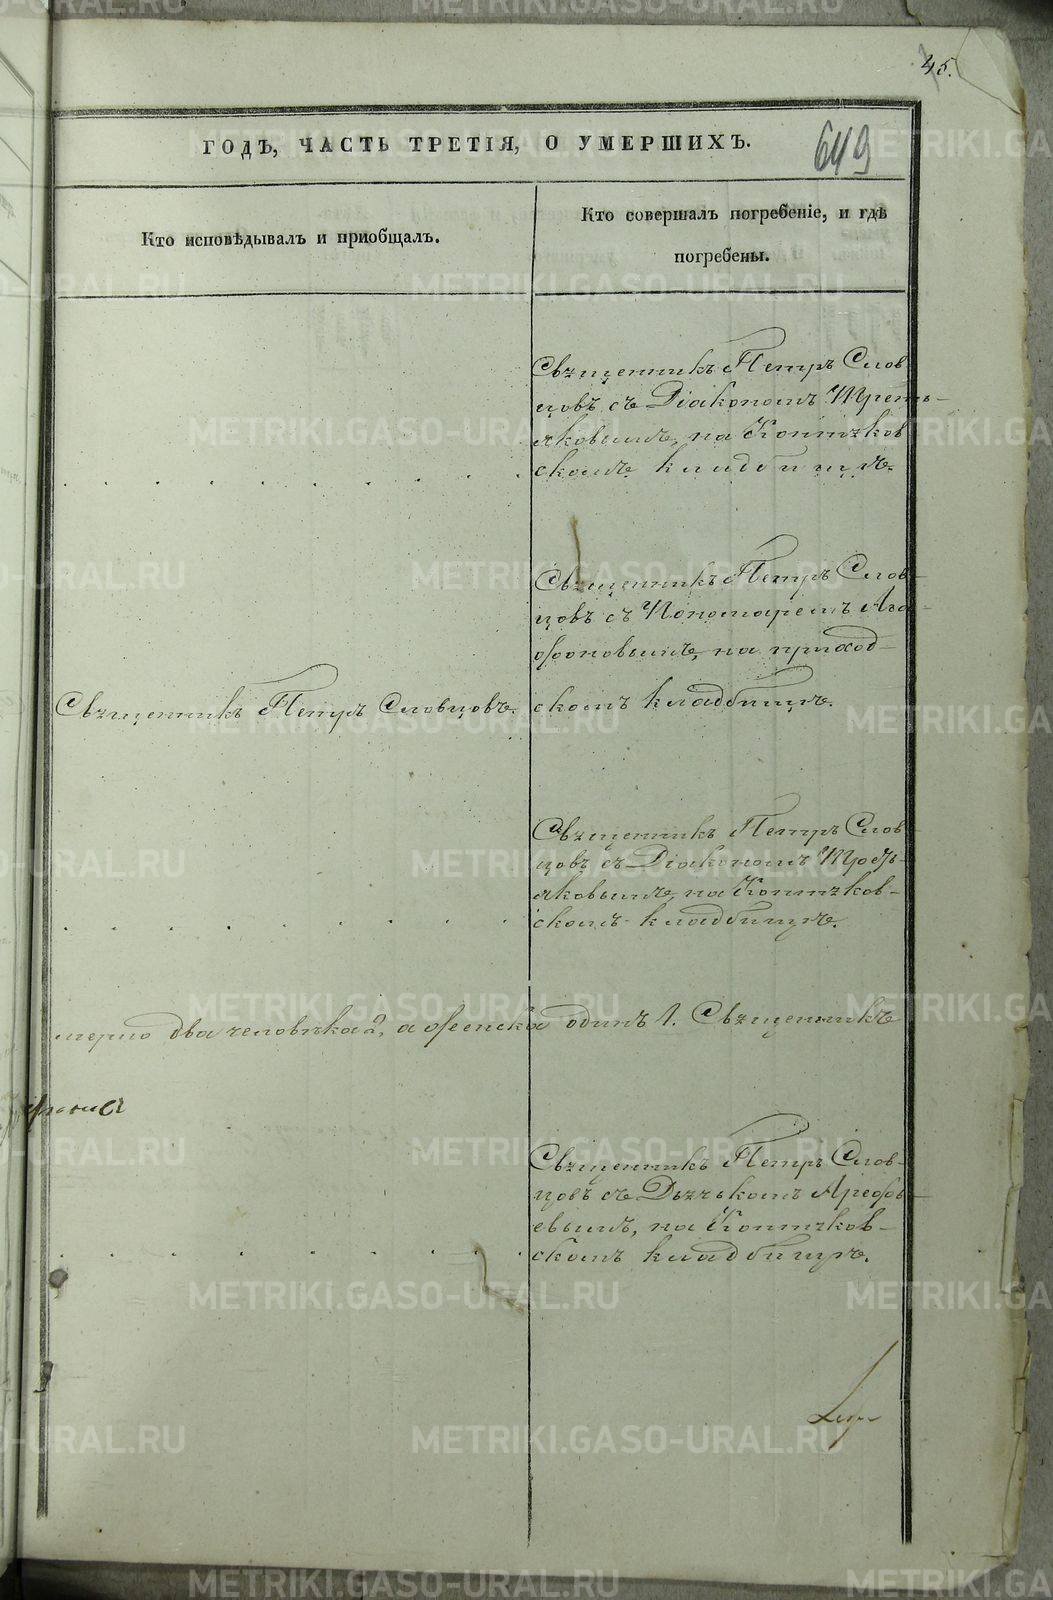 45.
649
ГОДЪ, ЧАСТЬ ТРЕТІЯ, О УМЕРШИХЪ.
Кто исповѣдывалъ и пріобщалъ.
Кто совершалъ погребеніе, и гдѣ
погребены.
Священникъ Петръ Слов
цовъ съ Діакономъ Треть-
яковымъ, на Коптяков
скомъ кладбищѣ.
Священникъ Петръ Слов-
цовъ съ Пономаремъ Ага-
фоновымъ, на приход-
скомъ кладбищѣ.
Священникъ Петръ Словцовъ.
Священникъ Петръ Слов-
цовъ съ Діакономъ Треть-
яковымъ, на Коптяков-
скомъ кладбищѣ.
два человѣка 2, а женска одинъ 1. Священникъ
Священникъ Петръ Слов-
цовъ съ Дьячкомъ Арефь-
евымъ, на Коптяков-
скомъ кладбищѣ.
METRIKI.GASO-URAL.RU